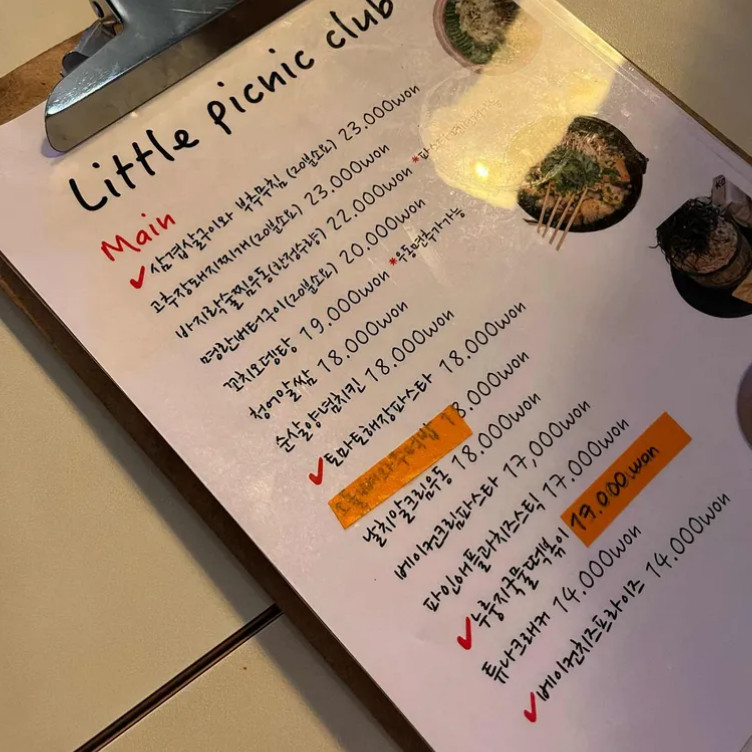 Little picnic club
Main
✓삼겹살구이와 부추무침 (20분소요) 23.000won
고추장돼지찌개(20분소요) 23.000won
바지락술찜우동(한정수량) 22.000won
명란버터구이(20분소요) 20.000won
꼬치오뎅탕 19.000won *우동면추가가능
청어알쌈 18.000won
순살양념치킨 18.000won
✓토마토해장파스타 18.000won
18.000won
날치알크림우동 18.000won
베이컨크림파스타 17,000won
파인애플라치즈스틱 17.000won
✓누룽지국물떡볶이 17.000.won
튜나크래커 14.000won
✓베이컨치즈프라이즈 14.000won